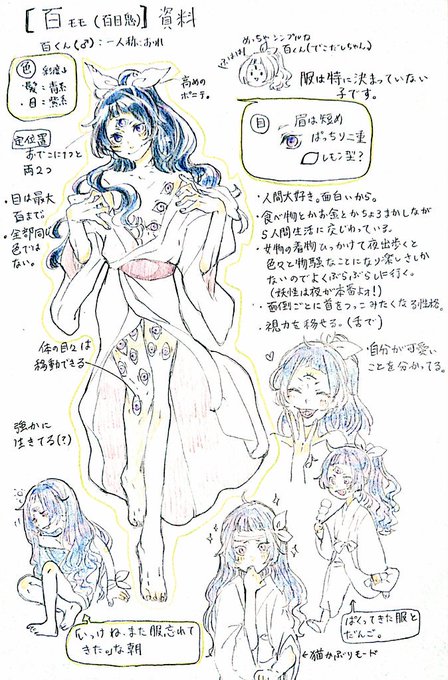 [百モモ(百目鬼)]資料
百くん(♂):一人称:おれ
色 彩度↓
・髪:青系
・目:紫系
高めの
ポニテ。
めっちゃシンプルな
百くん(でこだしちゃん。)
服は特に決まっていない
子です。
目
眉は短め
ぱっちり二重
レモン型?
定位置
おでこに1つと
両2つ
・目は最大
百まで。
・全部同じ
色では
ない。
・人間大好き。面白いから。
・食べ物とかお金とかちょろまかしながら
人間生活に応じわっている。
・女物の着物ひっかけて夜出歩くと
色々と物騒なことになり楽しさしか
ないのでよくぶらぶらしに行く。
(妖性は夜が本番よォ!)
・面倒ごとに首をつっこみたくなる性格。
・視力を移せる。(舌で)
・自分が可愛い
ことを分かってる。
体の目々は
移動できる
強かに
生きてる(?)
いっけね、また服忘れて
きたッな朝
←猫かぶりモード
ぱくってきた服と
だんご。